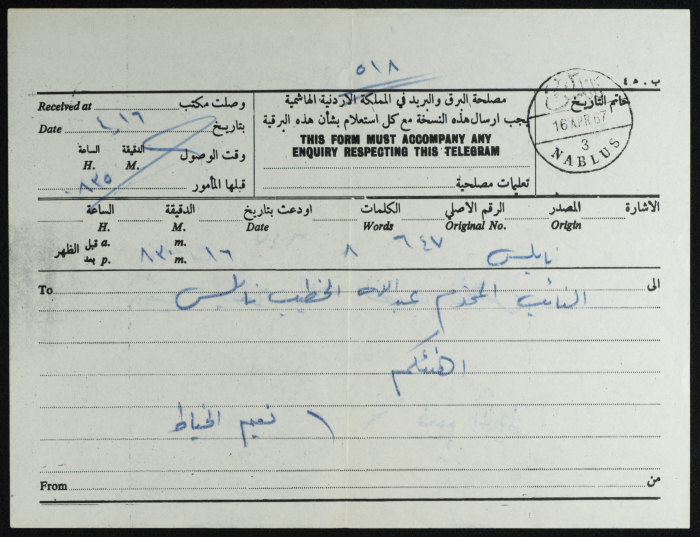 ٥١٨
ب . ٤٥
Received at وصلت مكتب
Date ٤/١٦ بتاريخ
الساعة الدقيقة وقت الوصول
H. M.
٨٣٥ قبلها المأمور
مصلحة البرق والبريد في المملكة الاردنية الهاشمية
يجب ارسال هذه النسخة مع كل استعلام بشأن هذه البرقية
THIS FORM MUST ACCOMPANY ANY
ENQUIRY RESPECTING THIS TELEGRAM
تعليمات مصلحية
خاتم التاريخ
16 APR 67
3
NABLUS
الاشارة المصدر الرقم الاصلي الكلمات اودعت بتاريخ الدقيقة الساعة
Origin Original No. Words Date M. H.
قبل a. m. الظهر
بعد p. m.
نابلس ٦٤٧ ٨ ١٦ ٨٣٠
To الى
النائب المحترم عبدالله الخطيب نابلس
اهنئكم
نعيم الخياط
From من